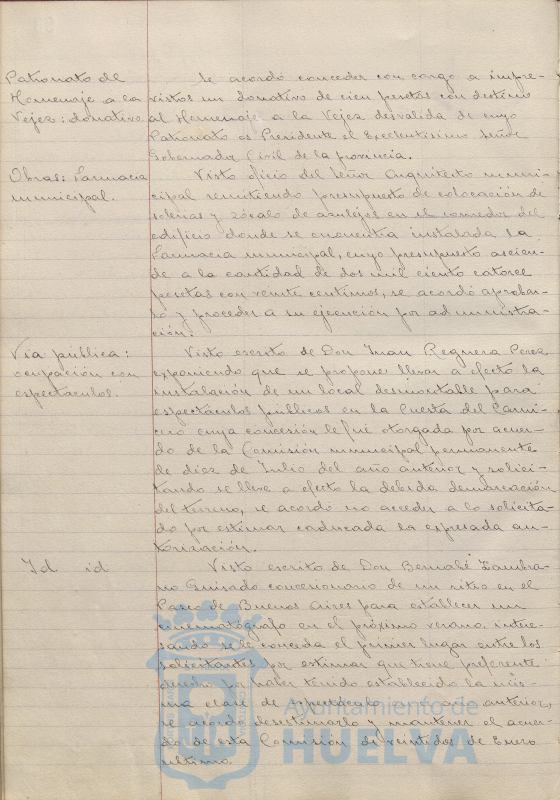 Patronato del
Homenaje a la
Vejez: donativo
Se acordó conceder con cargo a impre-
vistos un donativo de cien pesetas con destino
al Homenaje a la Vejez desvalida de cuyo
Patronato es Presidente el Excelentísimo Señor
Gobernador Civil de la provincia.
Obras: Farmacia
municipal.
Visto oficio del Señor Arquitecto muni-
cipal remitiendo presupuesto de colocación de
solerias y zócalo de azulejos en el comedor del
edificio donde se encuentra instalada la
Farmacia municipal, cuyo presupuesto ascien-
de a la cantidad de dos mil ciento catorce
pesetas con veinte centimos, se acordó aprobar-
lo y proceder a su ejecución por administra-
ción.
Via pública:
ocupación con
espectáculos.
Visto escrito de Don Juan Regnera Perez
exponiendo que se propone llevar a efecto la
instalación de un local desmontable para
espectáculos públicos en la Cuesta del Carni-
cero cuya concesión le fué otorgada por acuer-
do de la Comisión municipal permanente
de diez de Julio del año anterior y solici-
tando se lleve a efecto la debida demarcación
del terreno, se acordó no acceder a lo solicita-
do por estimar caducada la expresada au-
torización.
Id id
Visto escrito de Don Bernabé Zambra-
no Guisado concesionario de un sitio en el
Paseo de Buenos Aires para establecer un
cinematógrafo en el próximo verano, intere-
sando se le conceda el primer lugar entre los
solicitantes por estimar que tiene preferente
derecho por haber tenido establecido la mis-
ma clase de espectáculo en año anterior,
se acordó desestimarlo y mantener el acuer-
do de esta Comisión de veintidos de Enero
ultimo.
Ayuntamiento de
HUELVA